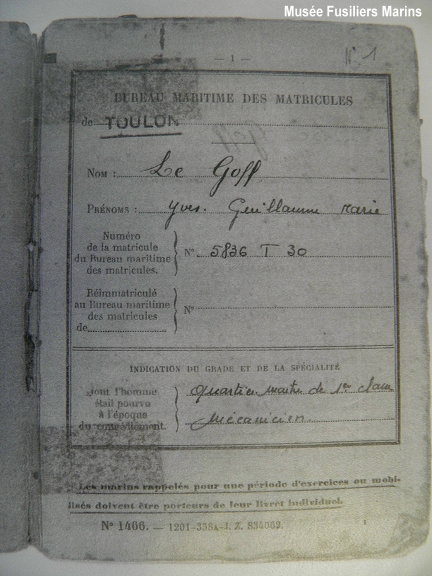 Musée Fusiliers Marins
— 1 —
N° 1
BUREAU MARITIME DES MATRICULES
de TOULON
NOM : Le Goff
PRÉNOMS : Yves Guillaume Marie
Numéro
de la matricule
du Bureau maritime
des matricules.
N° 5836 T 30
Réimmatriculé
au Bureau maritime
des matricules
de
N°
INDICATION DU GRADE ET DE LA SPÉCIALITÉ
dont l'homme
était pourvu
à l'époque
du congédiement.
Quartier maître de 1re classe
Mécanicien
Les marins rappelés pour une période d'exercices ou mobi-
lisés doivent être porteurs de leur livret individuel.
N° 1466. — 1201-358A-J. Z. 834062.